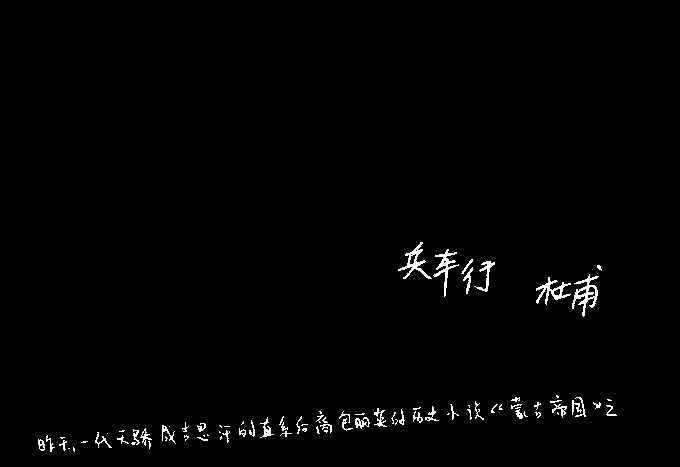 兵车行 杜甫
昨天,一代天骄成吉思汗的直系后裔包丽英的历史小说《蒙古帝国》之